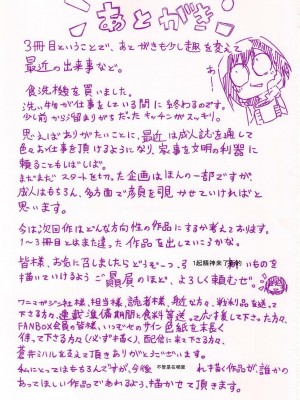 あとがき
3冊目ということで、あとがきも少し趣を変えて
最近の出来事など。
食洗機を買いました。
洗い物が仕事をしている間に終わるのです。
少し前から溜まりがちだったキッチンがスッキリ。
思えばありがたいことに、最近は成人誌を通して
色々お仕事を頂けるようになり、家事を文明の利器に
頼ることもしばしば。
まだまだスタートを切った企画はほんの一部ですが、
成人はもちろん、多方面で顔を覗かせていければと
思います。
今は次回作はどんな方向性の作品にするか考えております。
1〜3冊目とはまた違った作品を出していこうかな。
皆様、お気に召しましたらどうぞ一つ
1起精神来了 的
いものを
描いていけるようご贔屓のほど、よろしく頼むぜ。
フニマガジン社様、担当様、読者様、
粉利品を送って
下さる方々、連載準備期間に食料等送って応援して下さった方々、
FANBOX会員の皆様、いつぞやのサイン色紙を末長く
待って下さる方々(必ず描く)、配信に来て下さる方、
蒼井ミハルを支えて頂きありがとうございます。
私にとってはもちろんですが、今後
不管是在哪座
れ描く作品が、誰かの
あってほしい作品であれるよう、描かせて頂きます。